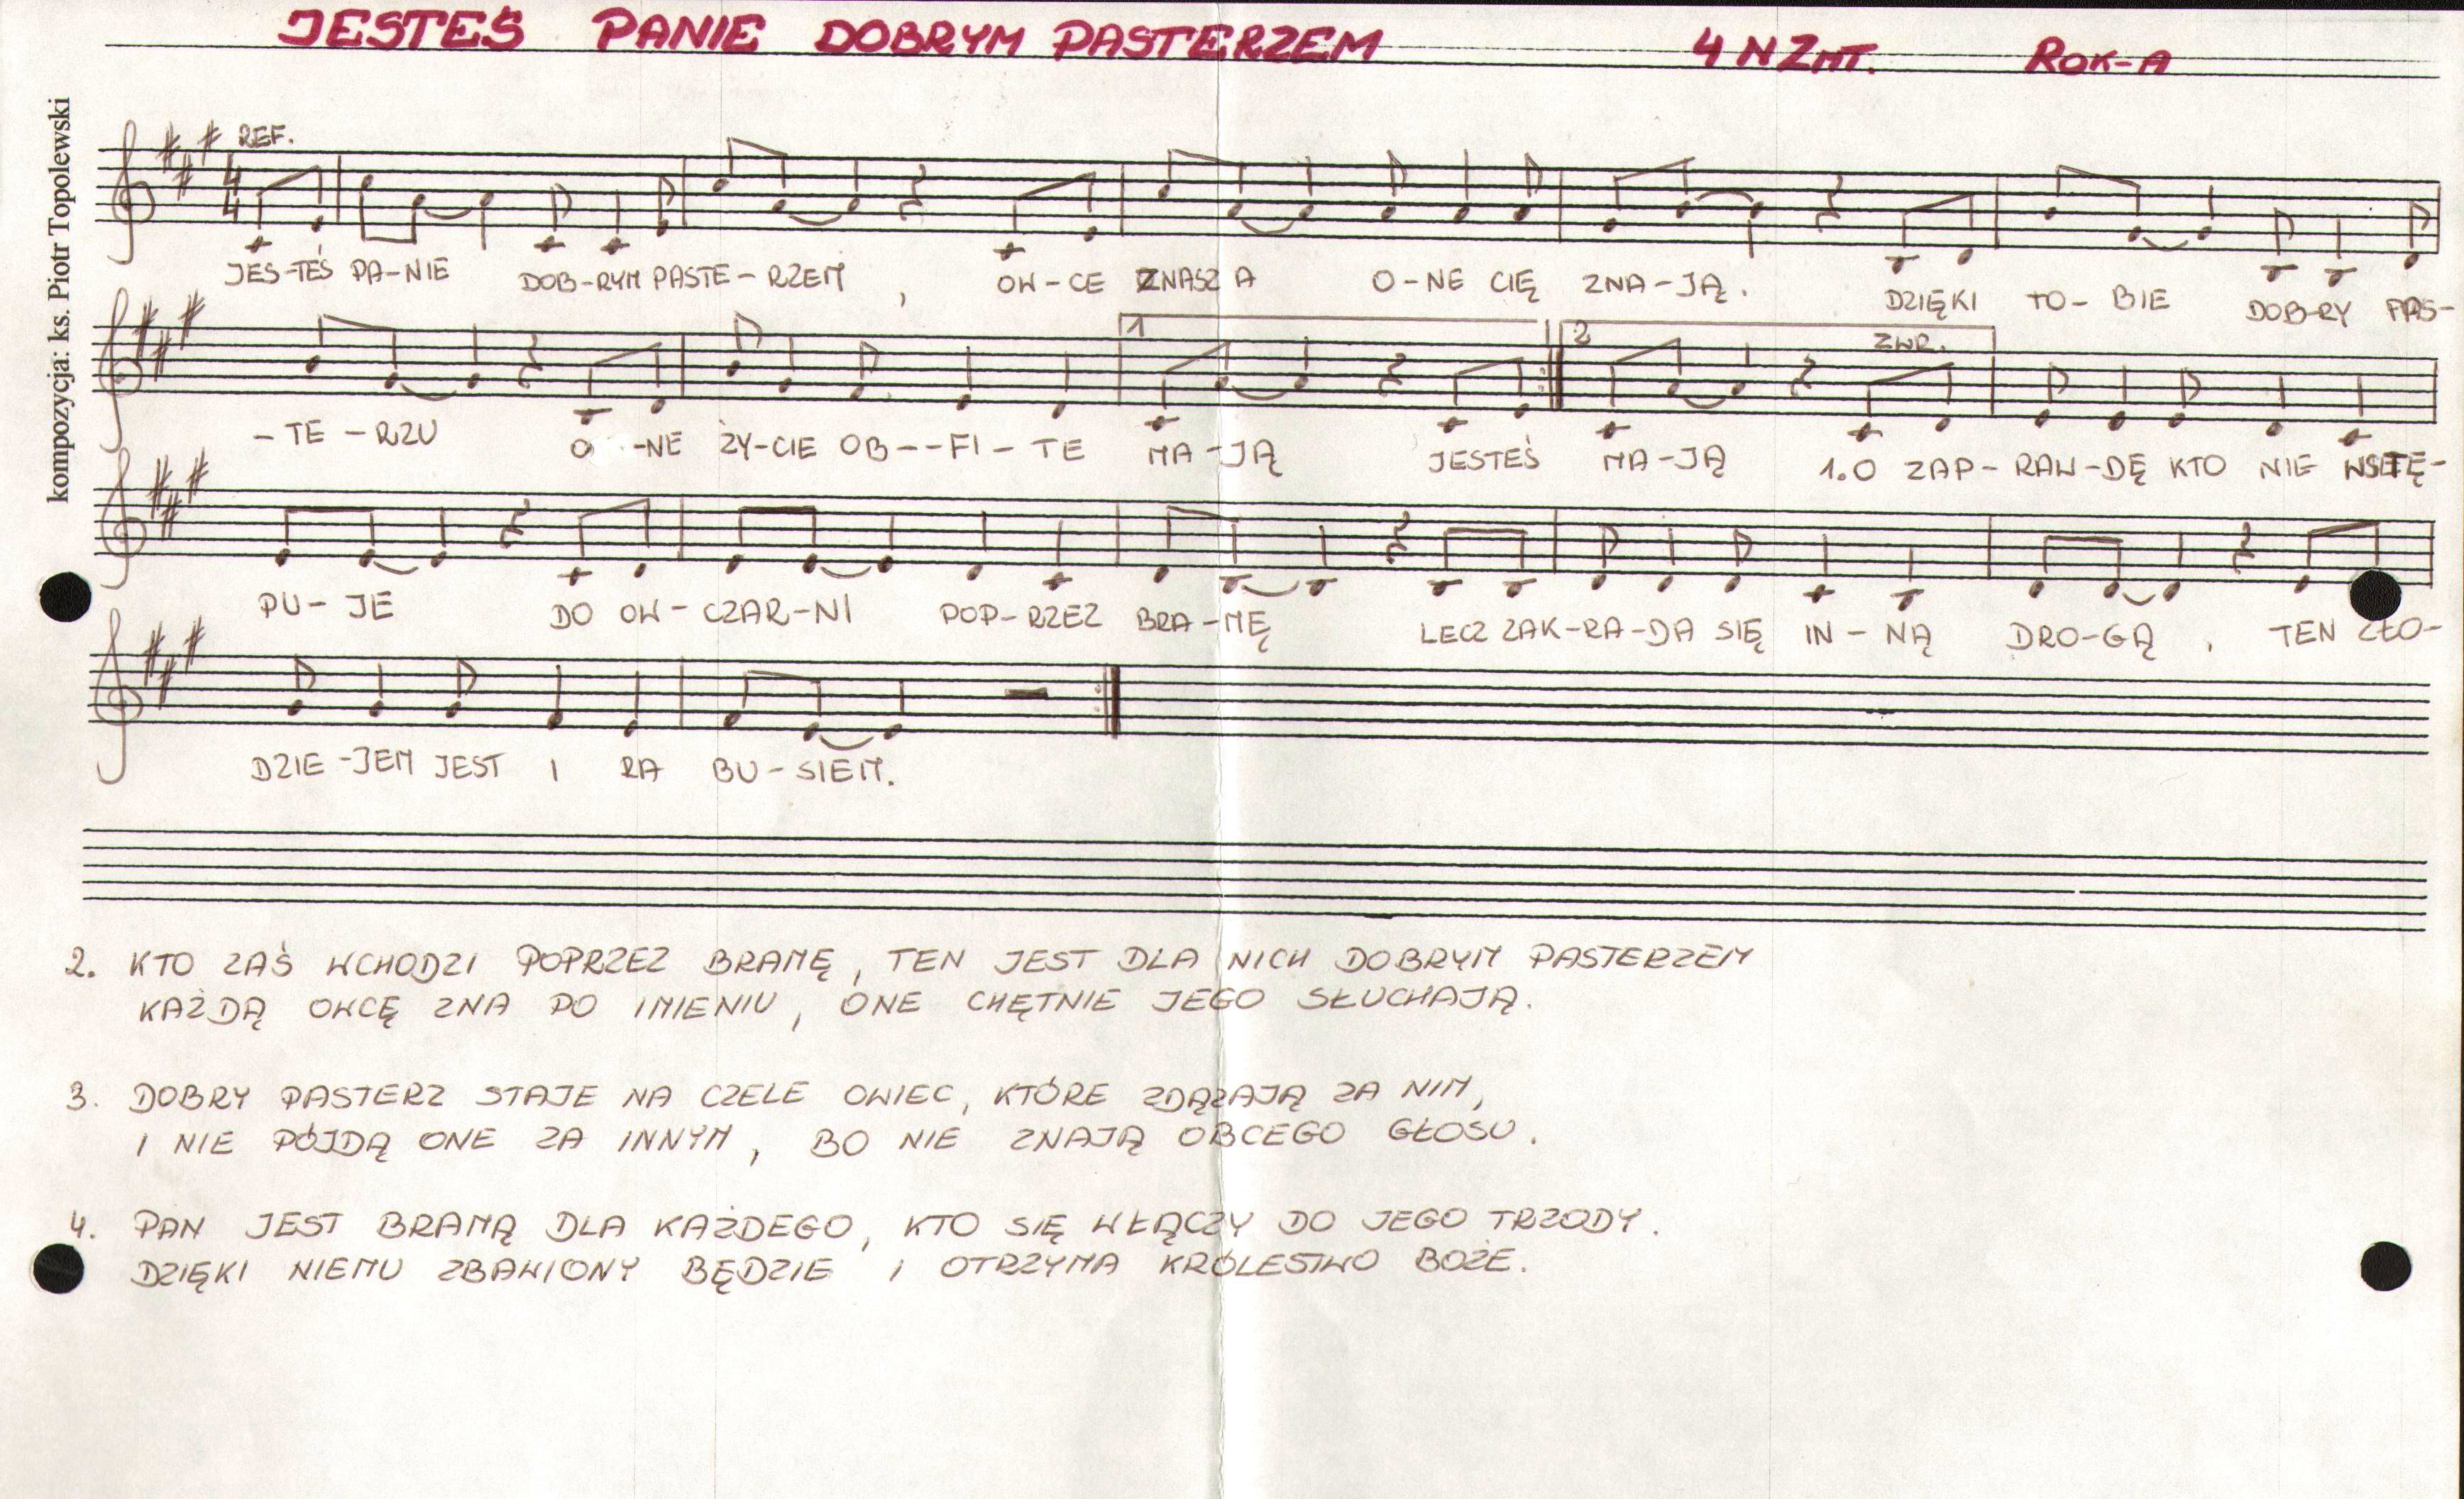 JESTEŚ PANIE DOBRYM PASTERZEM 4 N Zmt. Rok-A
kompozycja: ks. Piotr Topolewski
REF.
4
4
JES-TEŚ PA-NIE DOB-RYM PASTE-RZEM, OW-CE ZNASZ A O-NE CIĘ ZNA-JĄ. DZIĘKI TO-BIE DOB-RY PAS-
1 2 ZWR.
-TE-RZU O-NE ŻY-CIE OB--FI-TE MA-JĄ JESTEŚ MA-JĄ 1.O ZAP-RAW-DĘ KTO NIE WSTĘ-
PU-JE DO OW-CZAR-NI POP-RZEZ BRA-MĘ LECZ ZAK-RA-DA SIĘ IN-NĄ DRO-GĄ, TEN ZŁO-
DZIE-JEM JEST I RA BU-SIEM.
2. KTO ZAŚ WCHODZI POPRZEZ BRAMĘ, TEN JEST DLA NICH DOBRYM PASTERZEM
KAŻDĄ OWCĘ ZNA PO IMIENIU, ONE CHĘTNIE JEGO SŁUCHAJĄ.
3. DOBRY PASTERZ STAJE NA CZELE OWIEC, KTÓRE ZDĄŻAJĄ ZA NIM,
I NIE PÓJDĄ ONE ZA INNYM, BO NIE ZNAJĄ OBCEGO GŁOSU.
4. PAN JEST BRAMĄ DLA KAŻDEGO, KTO SIĘ WŁĄCZY DO JEGO TRZODY.
DZIĘKI NIEMU ZBAWIONY BĘDZIE I OTRZYMA KRÓLESTWO BOŻE.